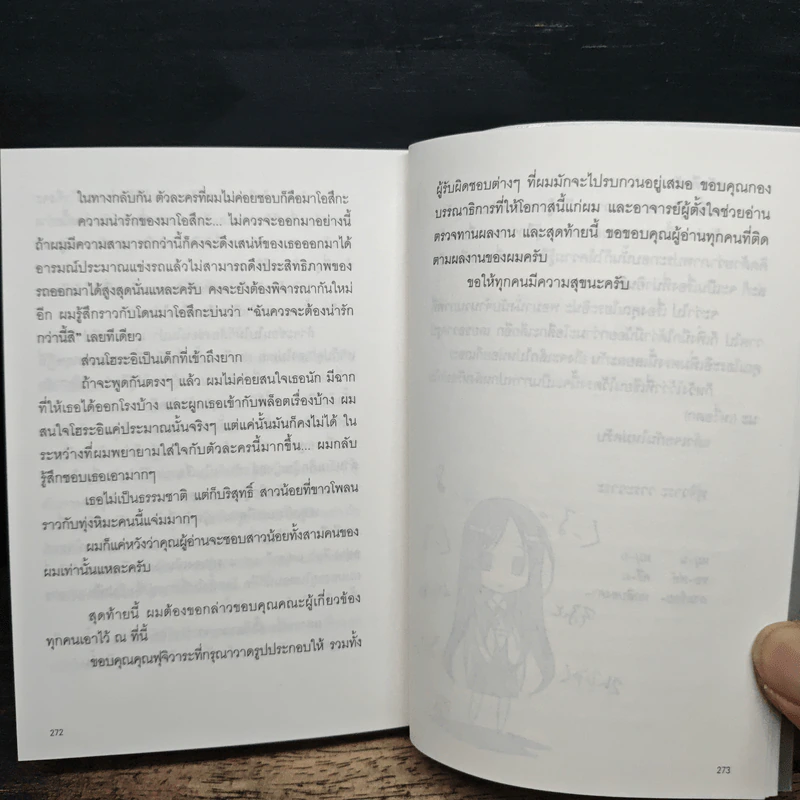 ในทางกลับกัน ตัวละครที่ผมไม่ค่อยชอบก็คือมาโอสึกะ
ความน่ารักของมาโอสึกะ... ไม่ควรจะออกมาอย่างนี้
ถ้าผมมีความสามารถกว่านี้ก็คงจะดึงเสน่ห์ของเธอออกมาได้
อารมณ์ประมาณแข่งรถแล้วไม่สามารถดึงประสิทธิภาพของ
รถออกมาได้สูงสุดนั่นแหละครับ คงจะยังต้องพิจารณากันใหม่
อีก ผมรู้สึกราวกับโดนมาโอสึกะบ่นว่า “ฉันควรจะต้องน่ารัก
กว่านี้สิ” เลยทีเดียว
ส่วนโฮระอิเป็นเด็กที่เข้าถึงยาก
ถ้าจะพูดกันตรงๆ แล้ว ผมไม่ค่อยสนใจเธอนัก มีฉาก
ที่ให้เธอได้ออกโรงบ้าง และผูกเธอเข้ากับพล็อตเรื่องบ้าง ผม
สนใจโฮระอิแค่ประมาณนั้นจริงๆ แต่แค่นั้นมันก็คงไม่ได้ ใน
ระหว่างที่ผมพยายามใส่ใจกับตัวละครนี้มากขึ้น... ผมกลับ
รู้สึกชอบเธอเอามากๆ
เธอไม่เป็นธรรมชาติ แต่ก็บริสุทธิ์ สาวน้อยที่ขาวโพลน
ราวกับทุ่งหิมะคนนี้แจ่มมากๆ
ผมก็แค่หวังว่าคุณผู้อ่านจะชอบสาวน้อยทั้งสามคนของ
ผมเท่านั้นแหละครับ
สุดท้ายนี้ ผมต้องขอกล่าวขอบคุณคณะผู้เกี่ยวข้อง
ทุกคนเอาไว้ ณ ที่นี้
ขอบคุณคุณฟุจิวาระที่กรุณาวาดรูปประกอบให้ รวมทั้ง
272
ผู้รับผิดชอบต่างๆ ที่ผมมักจะไปรบกวนอยู่เสมอ ขอบคุณกอง
บรรณาธิการที่ให้โอกาสนี้แก่ผม และอาจารย์ผู้ตั้งใจช่วยอ่าน
ตรวจทานผลงาน และสุดท้ายนี้ ขอขอบคุณผู้อ่านทุกคนที่ติด
ตามผลงานของผมครับ
ขอให้ทุกคนมีความสุขนะครับ
273